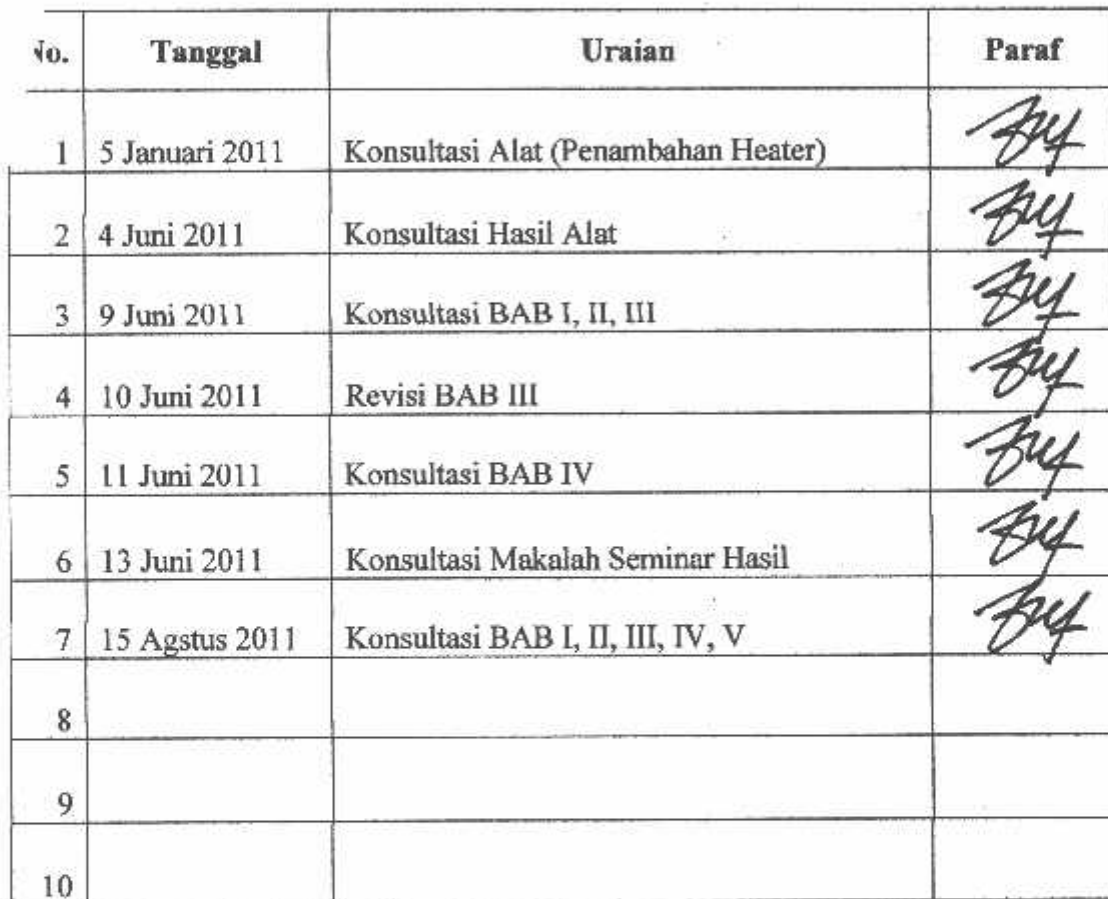 No. Tanggal Uraian Paraf
1 5 Januari 2011 Konsultasi Alat (Penambahan Heater)
2 4 Juni 2011 Konsultasi Hasil Alat
3 9 Juni 2011 Konsultasi BAB I, II, III
4 10 Juni 2011 Revisi BAB III
5 11 Juni 2011 Konsultasi BAB IV
6 13 Juni 2011 Konsultasi Makalah Seminar Hasil
7 15 Agstus 2011 Konsultasi BAB I, II, III, IV, V
8
9
10